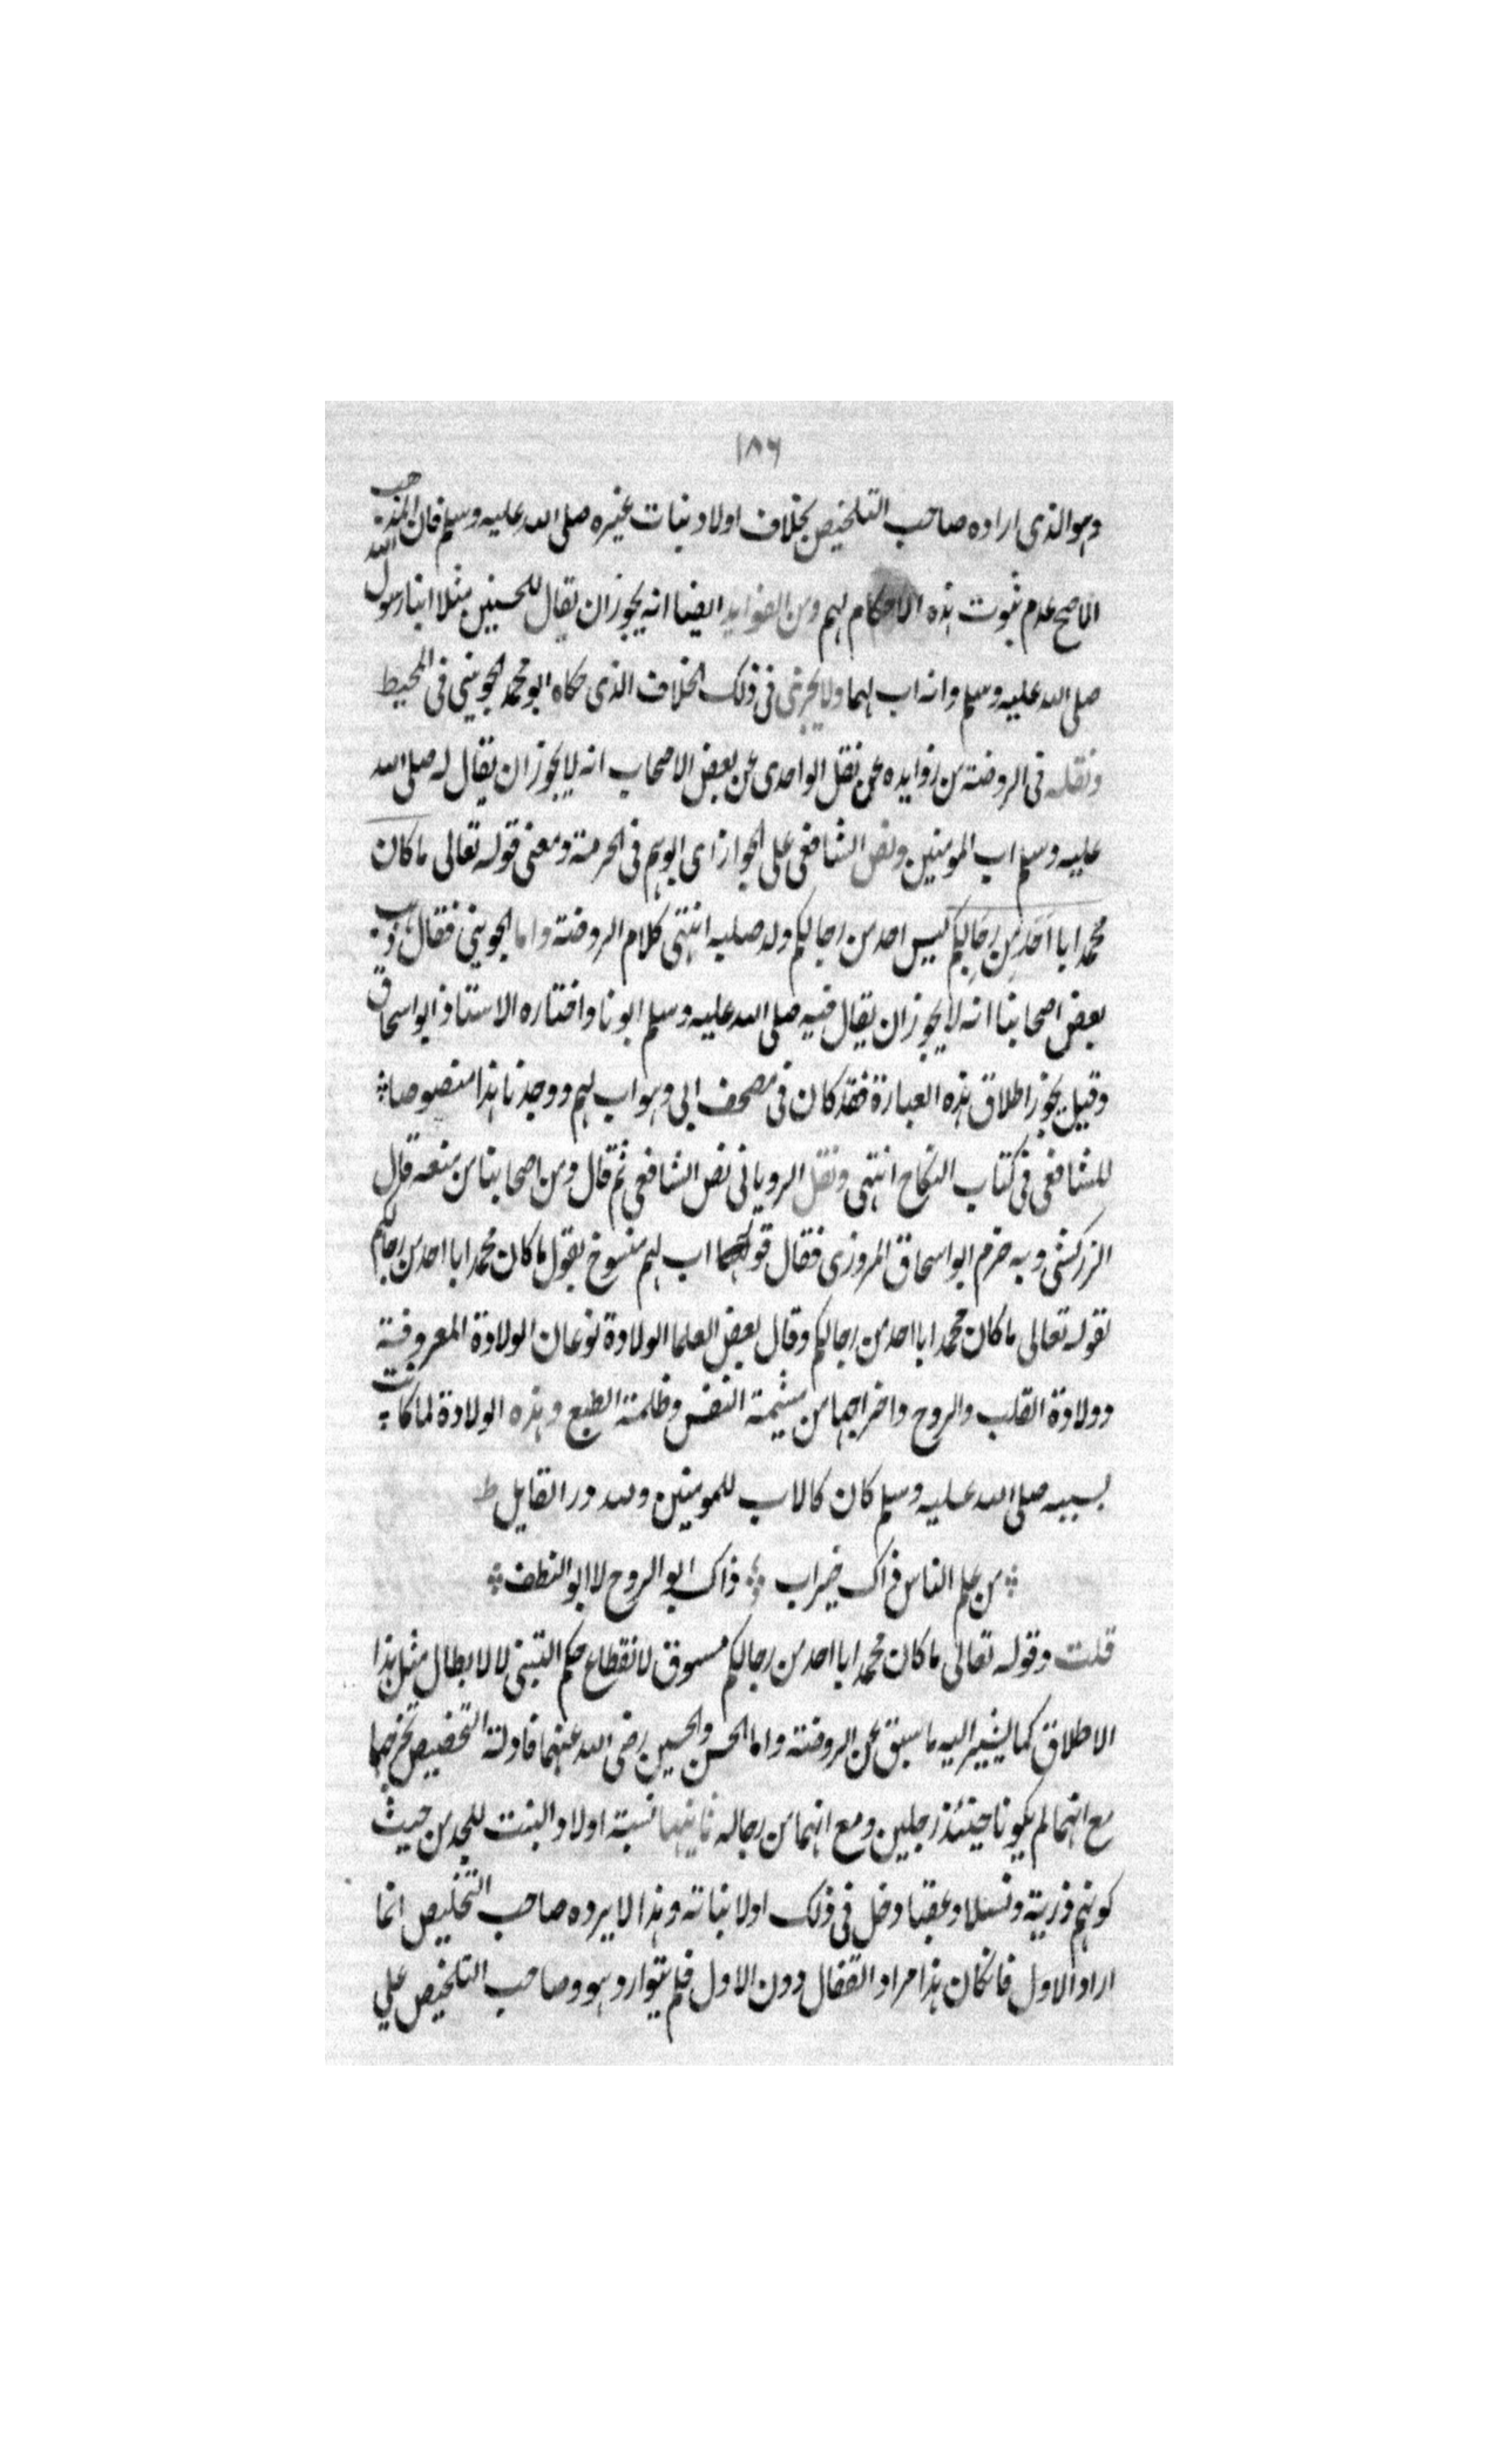 ١٨٦
وهو الذى اراده صاحب التلخيص بخلاف اولاد بنات غيره صلى الله عليه وسلم فان المذهب
الاصح عدم ثبوت هذه الاحكام لهم ومن الفوايد ايضا انه يجوز ان يقال للحسنين مثلا ابنا رسول الله
صلى الله عليه وسلم وانه اب لهما ولا يجرى فى ذلك الخلاف الذى حكاه ابو محمد الجوينى فى المحيط
ونقله فى الروضة من زوايده عن نقل الواحدى عن بعض الاصحاب انه لا يجوز ان يقال له صلى الله
عليه وسلم اب المومنين ونص الشافعى على الجواز اى ابوهم فى الحرمة ومعنى قوله تعالى ما كان
محمد ابا احد من رجالكم ليس احد من رجالكم ولد صلبه انتهى كلام الروضة واما الجوينى فقال ذهب
بعض اصحابنا انه لا يجوز ان يقال فيه صلى الله عليه وسلم ابونا واختاره الاستاذ ابو اسحاق
وقيل يجوز اطلاق هذه العبارة فقد كان فى مصحف ابى وهو اب لهم ووجدنا هذا منصوصا
للشافعى فى كتاب النكاح انتهى ونقل الرويانى نص الشافعى ثم قال ومن اصحابنا من منعه قال
الزركشى وبه جزم ابو اسحاق المروزى فقال اب لهم منسوخ بقول ما كان محمد ابا احد من رجالكم
لقوله تعالى ما كان محمد ابا احد من رجالكم وقال بعض العلما الولادة نوعان الولادة المعروفة
وولادة القلب والروح واخراجها من مشيمة النفس وظلمة الطبع وهذه الولادة لما كانت
بسببه صلى الله عليه وسلم كان كالاب للمومنين ولله در القايل
من علم الناس ذاك خير اب ذاك ابو الروح لا ابو النطف
قلت وقوله تعالى ما كان محمد ابا احد من رجالكم مسوق لانقطاع حكم التبنى لا لابطال مثل هذا
الاطلاق كما يشير اليه ما سبق عن الروضة واما الحسن والحسين رضى الله عنهما فادلة التخصيص تخرجهما
مع انهما لم يكونا حينئذ رجلين ومع انهما من رجاله ثانيها نسبة اولاد البنت للجد من حيث
كونهم ذرية ونسلا وعقبا دخل فى ذلك اولا بناته وهذا لا يرده صاحب التخليص انما
اراد الاول فانكان هذا مراد القفال دون الاول فلم يتوارد هو وصاحب التلخيص على